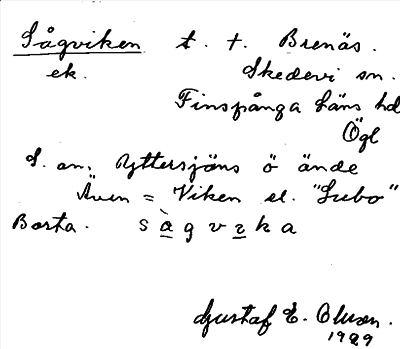 Sågviken t. t. Brenäs.
ek. Skedevi sn.
Finspånga läns hd
Ögl
S. om Yttersjöns ö ände
Även = Viken el. "Subo"
Borta. sågvika
Gustaf E. Olson.
1929